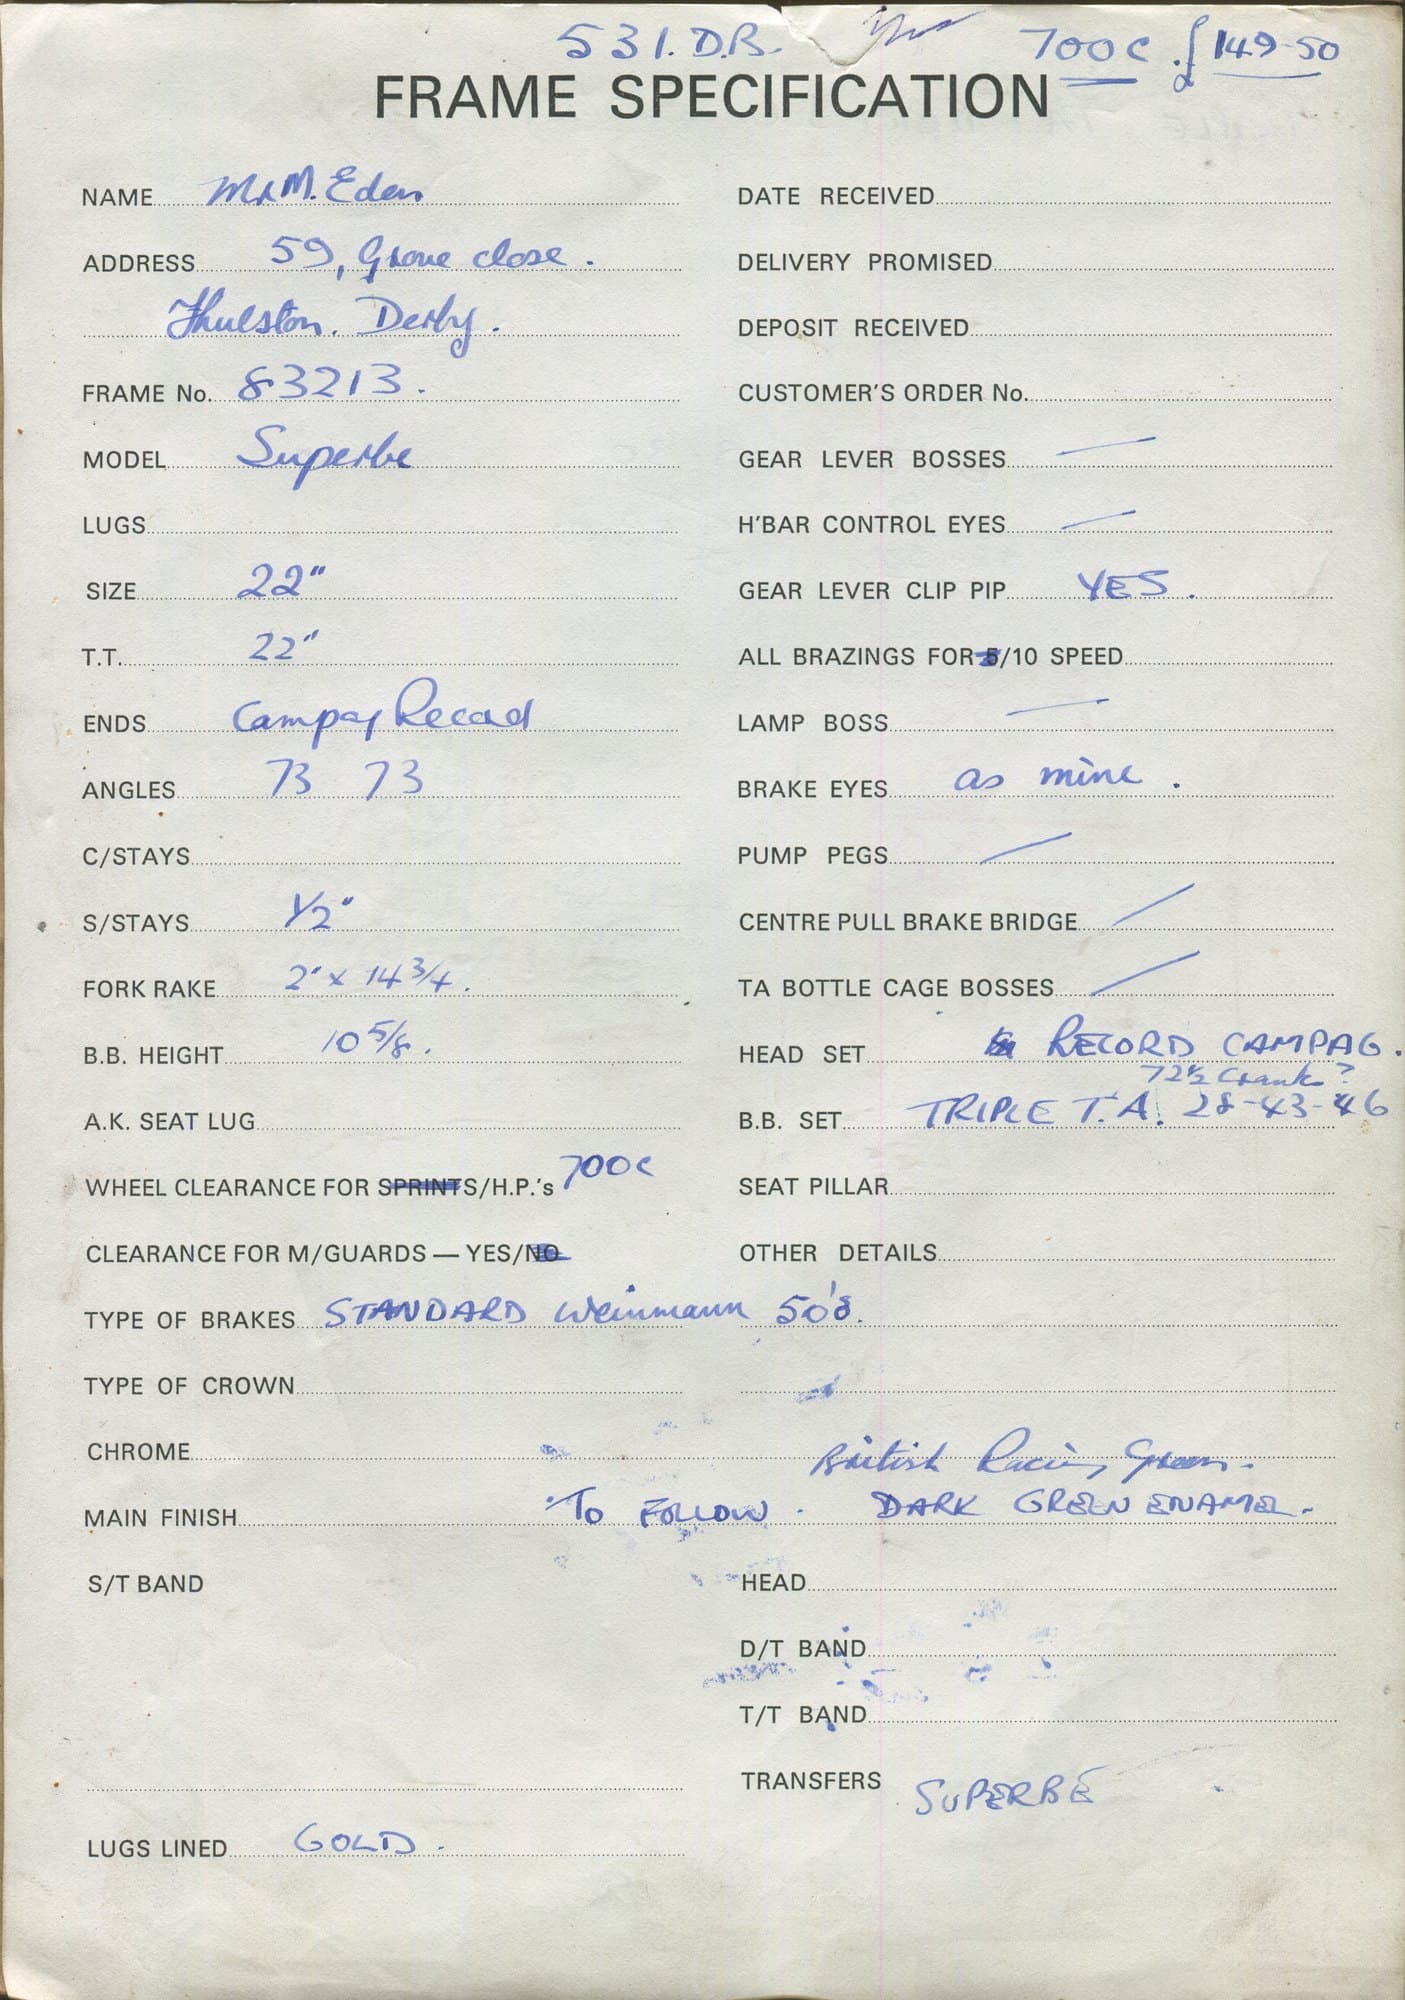 531. D.B. 700C £149-50
FRAME SPECIFICATION
NAME Mr M. Eden
ADDRESS 59, Grove close.
Thulston. Derby.
FRAME No. 83213.
MODEL Superbe
LUGS
SIZE 22"
T.T. 22"
ENDS Campag Record
ANGLES 73 73
C/STAYS
S/STAYS 1/2"
FORK RAKE 2" x 14 3/4.
B.B. HEIGHT 10 5/8.
A.K. SEAT LUG
WHEEL CLEARANCE FOR SPRINTS/H.P.'s 700c
CLEARANCE FOR M/GUARDS — YES/NO
TYPE OF BRAKES STANDARD Weinmann 50's.
TYPE OF CROWN
CHROME
MAIN FINISH To FOLLOW.
S/T BAND
LUGS LINED GOLD.
DATE RECEIVED
DELIVERY PROMISED
DEPOSIT RECEIVED
CUSTOMER'S ORDER No.
GEAR LEVER BOSSES —
H'BAR CONTROL EYES —
GEAR LEVER CLIP PIP YES.
ALL BRAZINGS FOR 5/10 SPEED
LAMP BOSS —
BRAKE EYES as mine.
PUMP PEGS /
CENTRE PULL BRAKE BRIDGE /
TA BOTTLE CAGE BOSSES /
HEAD SET RECORD CAMPAG.
72 1/2 Cranks?
B.B. SET TRIPLE T.A. 28-43-46
SEAT PILLAR
OTHER DETAILS
British Racing Green.
DARK GREEN ENAMEL.
HEAD
D/T BAND
T/T BAND
TRANSFERS SUPERBE